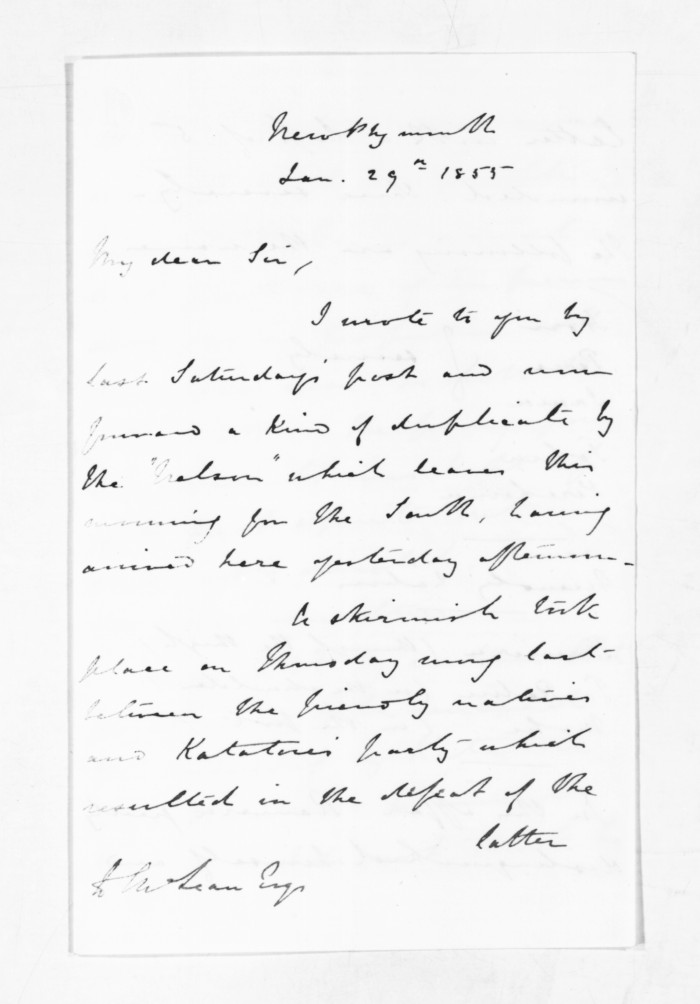 New Plymouth
Jan. 29th 1855
My dear Sir,
I wrote to you by
last Saturday's post and now
forward a kind of duplicate by
the "Nelson" which leaves this
morning for the South, having
arrived here yesterday afternoon_
A skirmish took
place on Thursday morng last
between the friendly natives
and Katatore's party which
resulted in the defeat of the
latter
McLean Esqr